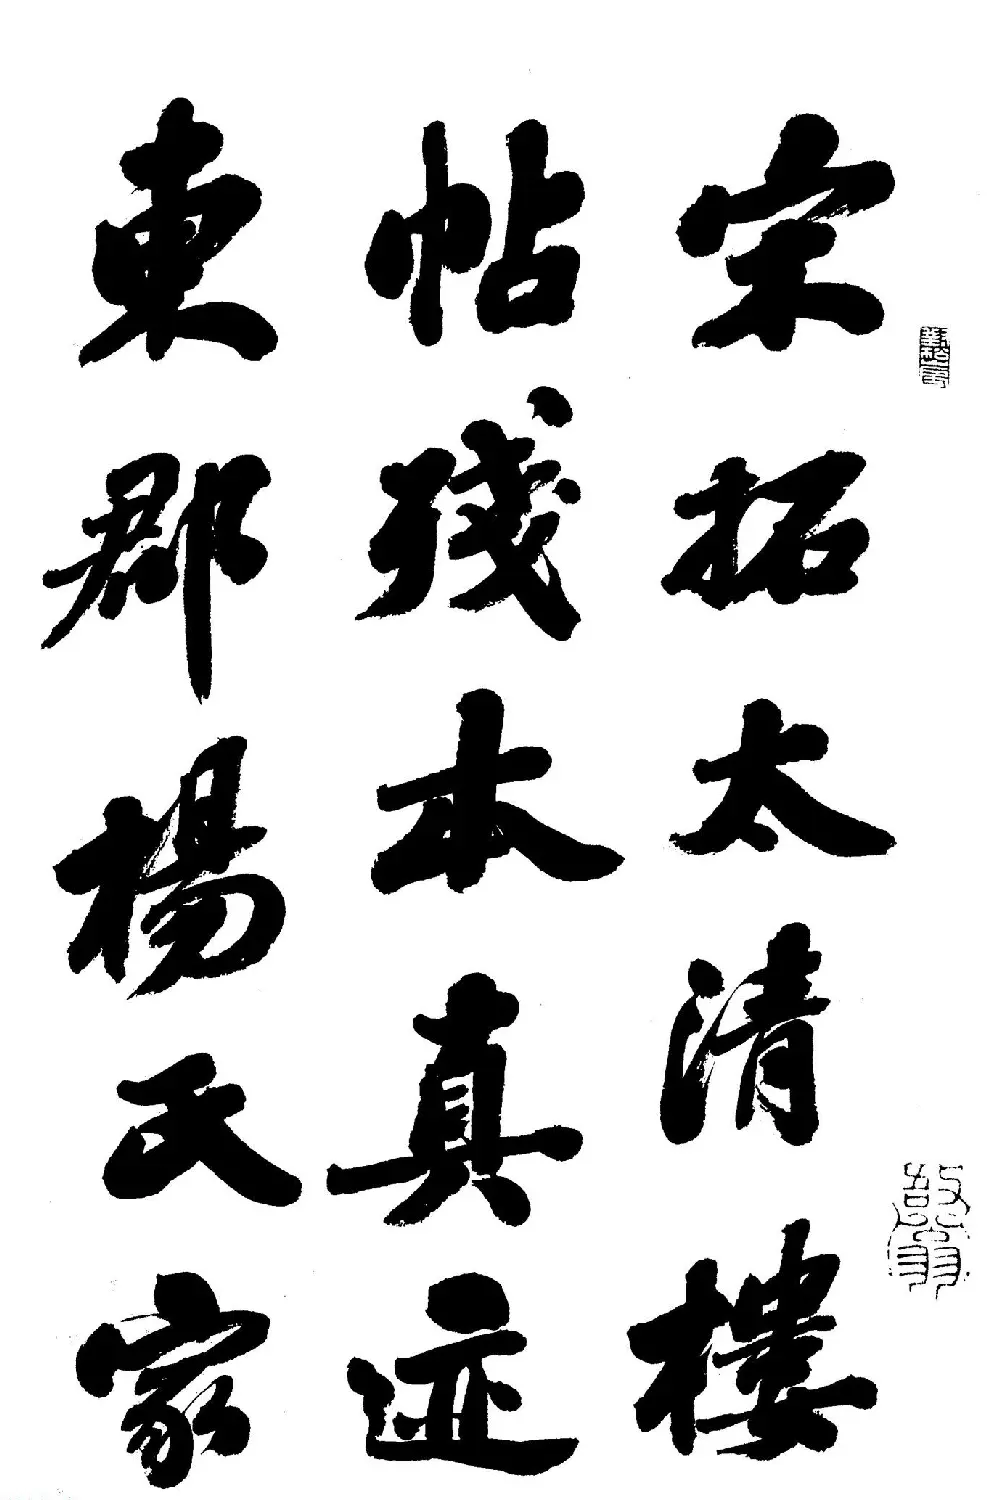 宋拓太清樓
帖残本真迹
東郡楊氏家